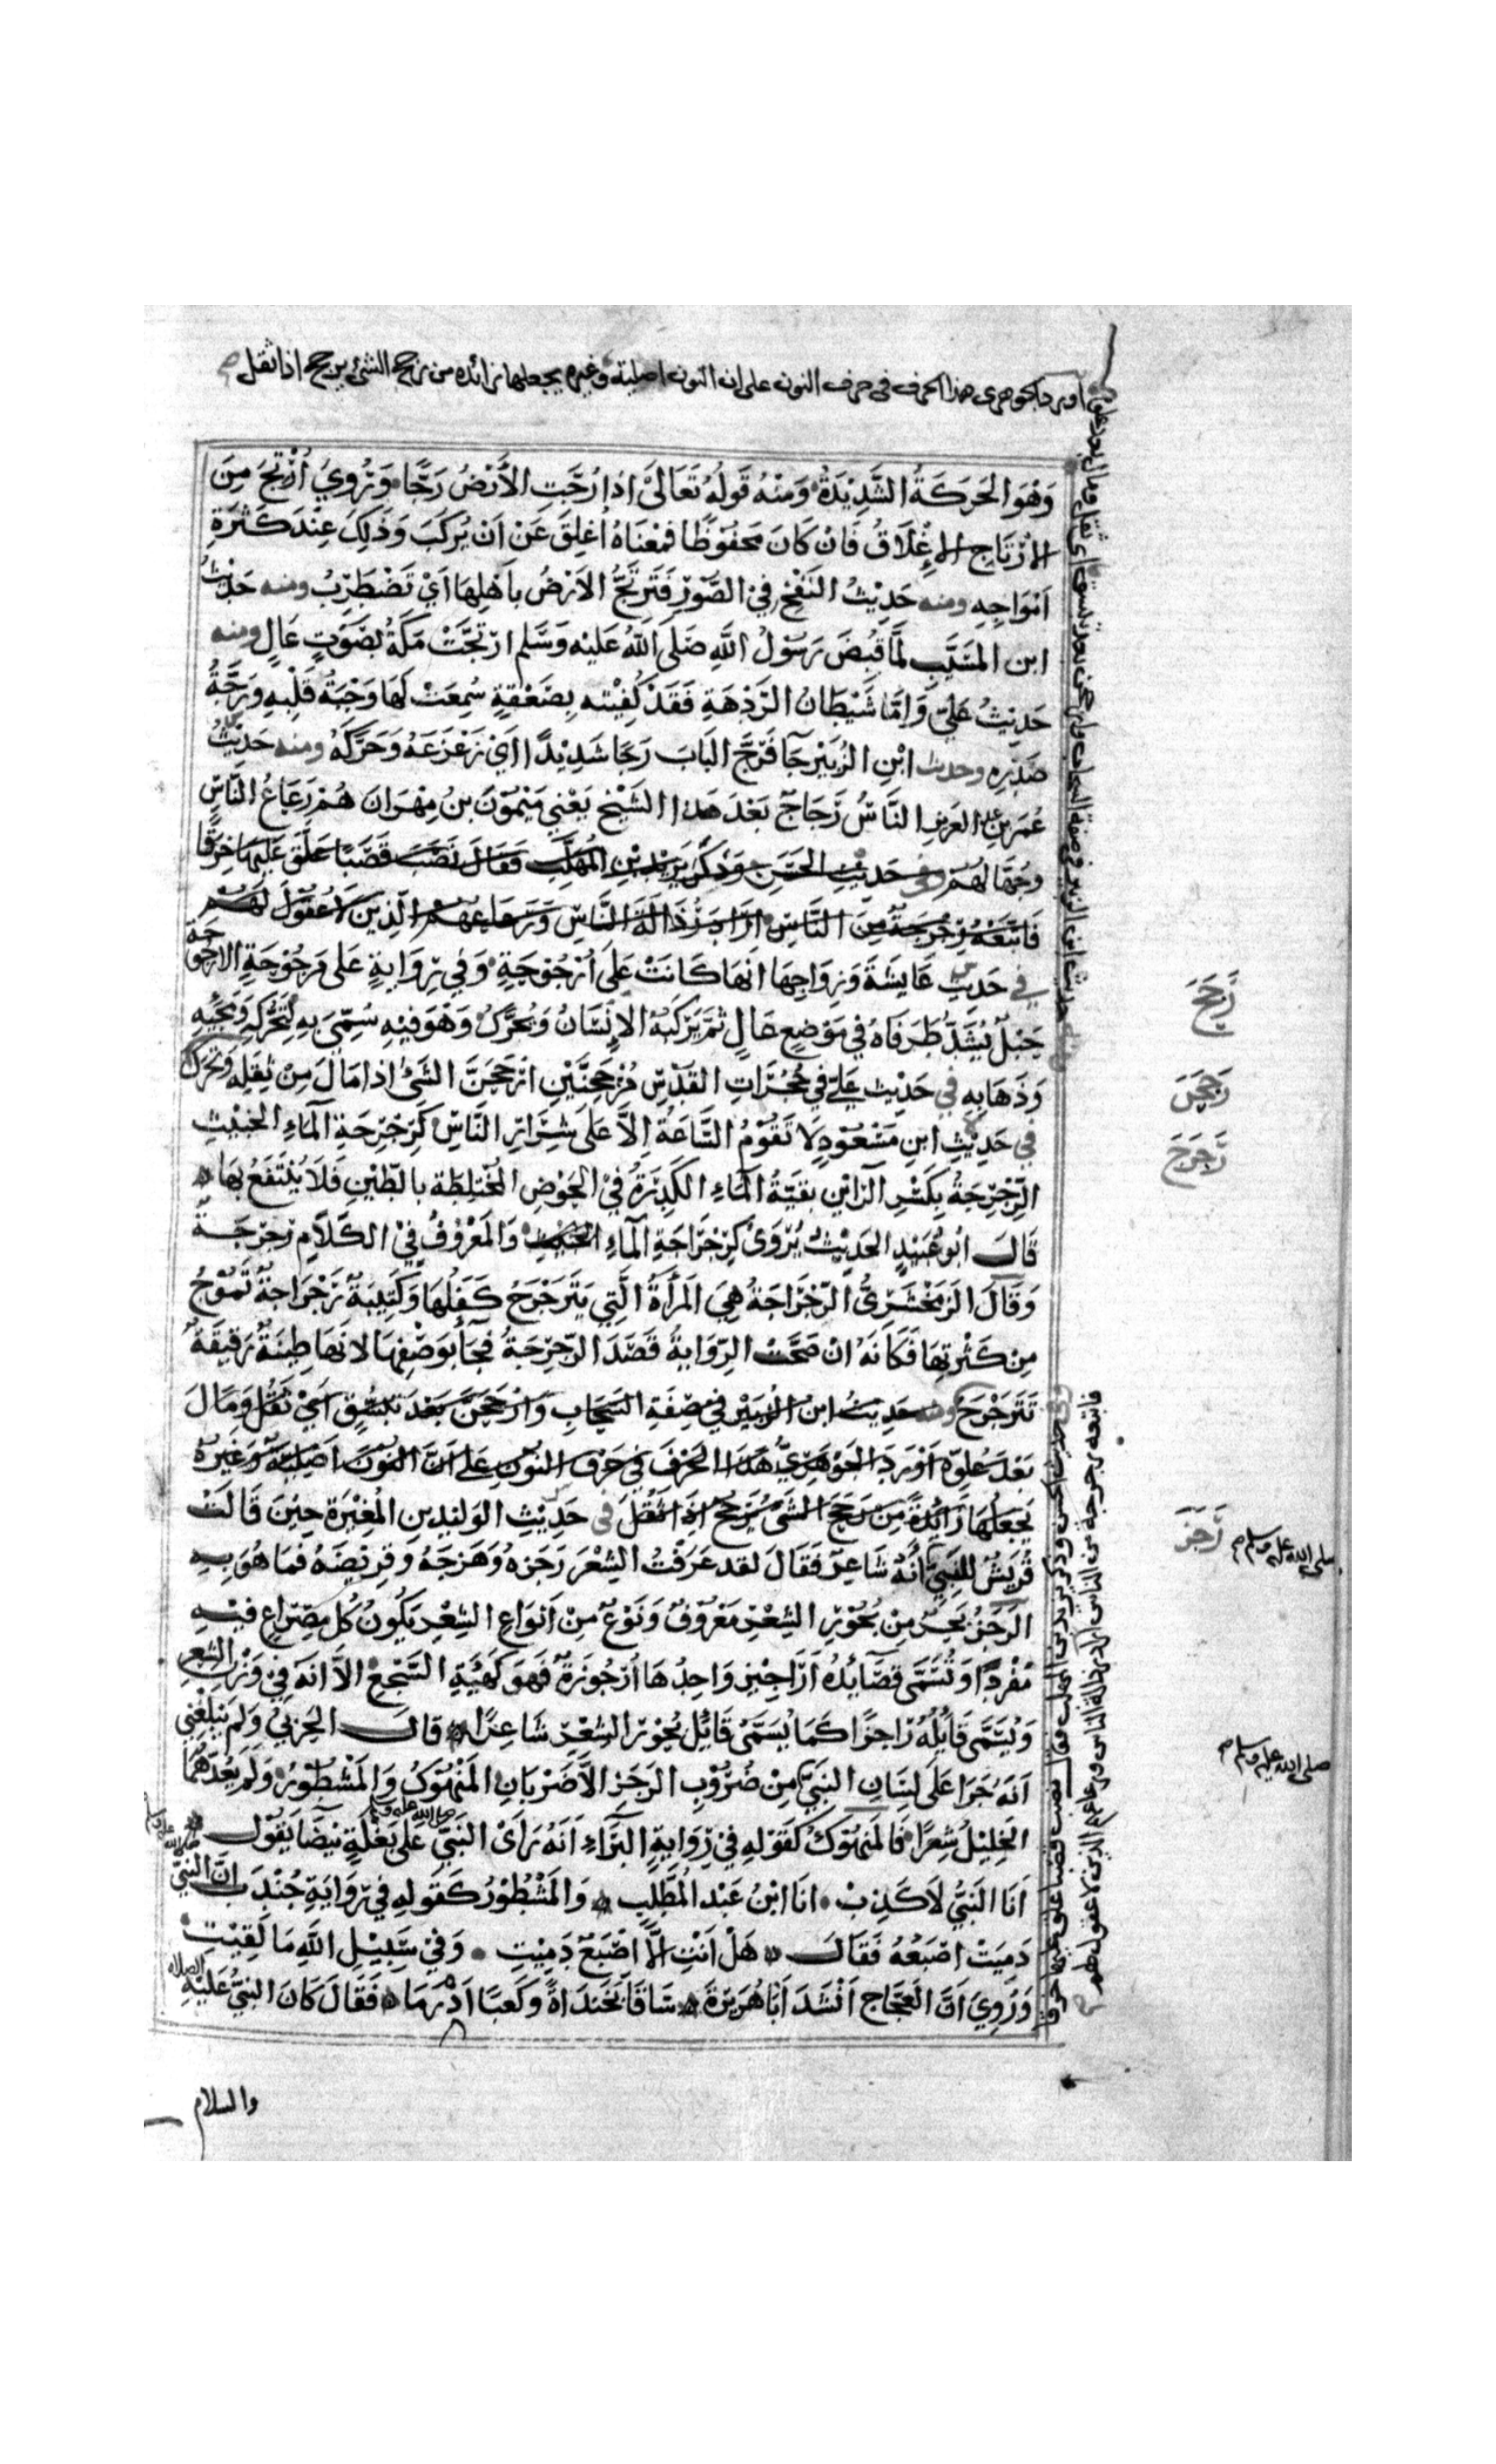 اورد الجوهرى هذا الحرف فى حرف النون على ان النون اصلية وغيره يجعلها زائده من رجح الشئ يرجح اذا ثقل
وَهُوَ الحَرَكَةُ الشَّدِيْدَةُ وَمِنْهُ قَولُهُ تَعَالَىٰ اذا رُجَّتِ الأَرْضُ رَجًّا وَيُرْوِيُ اُرْتِجَ مِنَ
الاِرْتَاجِ الاِغْلَاقُ فَان كَانَ مَحفُوْظًا فمعْنَاهُ اُغلِقَ عَنْ اَنْ يُركَبَ وَذَلِكَ عِنْدَ كَثْرَةِ
اَمْوَاجِهِ ومنه حَدِيْثُ النَفْخِ فِيْ الصُّوْرِ فَتَرتَجُّ الاَرْضُ بِاَهْلِهَا اَيْ تَضْطَرِبُ ومنه حَدِيْثُ
ابن المسَيَّبِ لمَّا قُبِضَ رَسُوْلُ اللهِ صَلَّى اللهُ عَلَيْهِ وَسَلَّم ارْتَجَّتْ مَكَّةُ بِصَوْتٍ عَالٍ ومنه
حَدِيْثُ عَليّ وَاِمَّا شَيْطَانُ الرَّدْهَةِ فَقَدْ كُفِيْتُه بِصَعْقَةٍ سُمِعَتْ لهَا وَجْبَةُ قَلْبِهِ وَرَجَّةُ
صَدْرِهِ وحديث ابْنِ الزُبَيْرِ جَآ فَرَجَّ البَابَ رَجًا شَدِيْدًا اَيْ زَعْزَعَهُ وَحَرَّكَهُ ومنه حَدِيْثُ
عُمَر بن عبد العَزيز النَّاسُ رَجَاجٌ بَعْدَ هَذا الشَيْخِ يَعْنِي مَيْمُوْنَ بنُ مِهْرَانَ هُمْ رَعَاعُ النَّاسِ
وجُهَّالهُم وفى حَدِيْثِ الحَسَنِ وَذَكَرَ يَزِيْدَ بْنِ المُهَلَّبِ فَقَالَ نَصَبَ قَصَبًا عَلَّقَ عَلَيْهَا خِرَقًا
فَاتَّبَعَهُ رِجْرِجَةٌ مِّنَ النَّاسِ ارَادَ رُذَالَةَ النَّاسِ وَرَعَاعَهُم الَّذِينَ لَا عُقُوْلَ لَهُمْ
في حَدِيثِ عَايِشَةَ وَزِوَاجِهَا انَهَا كَانَتْ عَلَى اُرْجُوْحَةٍ وَفِي رِوَايةٍ عَلَى مَرجُوْحَةٍ الارْجُوْحَة
رَجَحَ
حَبْلٌ يُشَدُّ طَرَفَاهُ فِي مَوْضِعٍ عَالٍ ثمَّ يَرْكَبُهُ الاِنْسَانُ وَيُحَرَّكُ وَهُوَ فِيْهِ سُمِّيَ بِهِ لِتَحَرُّكِهِ وَمَجِيْئِهِ
وَذَهَابِهِ فِي حَدِيْث عَلِيّ فِي حُجُرَاتِ القُدُسِ مُرْجَحِنِّيْنِ ارْجَحَنَّ الشَئُ اذا مَالَ مِنْ ثِقَلِهِ وَتحَرَّكَ
رَجَحَنَ
في حَدِيْثِ ابنِ مَسْعُوْدٍ لَا تَقُوْمُ السَّاعَةُ اِلاَّ عَلَى شِرَارِ النَّاسِ كَرِجْرِجَةِ المَاءِ الخَبِيْثِ
رَجرَجَ
الرِّجْرِجَةُ بِكَسْرِ الرَّائَيْنِ بقيَّةُ المَاءِ الكَدِرَةُ فِيْ الحَوْضِ المُخْتَلِطَة بِالطِّيْنِ فَلَا يُنْتَفَعُ بهَا
قَالَ ابُوعُبَيْدٍ الحَدِيْثُ يُرْوَىٰ كَرِجْرَاجَةِ المَاءِ وَالمَعْرُوْفُ فِيْ الكَلَامِ رِجْرِجَة
وَقَالَ الزَمَخْشَرِيُّ الرَّجْرَاجَةُ هِيَ المَرأَةُ الَّتِي يَتَرَجْرَجُ كَفَلُهَا وَكَتِيْبَةٌ رَجْرَاجَةٌ تَمُوْجُ
مِنْ كَثْرَتِهَا فَكَانَهُ انْ صَحَّتْ الرِّوَايةُ قَصَدَ الرِّجْرِجَةَ فجَآ بِوَصْفِهَا لانَهَا طِيْنَةٌ رَقِيْقَةٌ
تَتَرَجْرَجُ ومنه حَدِيْثُ ابن الزُبَيْر فِي صِفَةِ السَّحَابِ وَارْجَحَنَّ بَعْدَ تَبَسُّقٍ اَيْ ثَقُلَ وَمَالَ
بَعْدَ عُلوِّه اَوْرَدَ الجَوْهَرِيُّ هَذَا الحَرْفَ فِي حَرْفِ النُوْنِ عَلى اَنَّ النُوْنَ اَصْلِيَّةٌ وَغَيْرُهُ
يَجْعَلُهَا زَائِدَةً مِنْ رَجَحَ الشَئُ يَرْجَحُ اِذَا ثَقُلَ فى حَدِيْثِ الوَلِيْدِ بنِ المُغِيْرَةِ حِيْنَ قَالَتْ
رَجَزَ
قُرَيْشٌ للنَبِيِّ اِنَّهُ شَاعِرٌ فَقَالَ لقد عَرَفْتُ الشِعْرَ رَجَزهُ وَهَزَجَهُ وقَرِيْضَهُ فمَا هُوَ بِهِ
صلى الله عليه وسلم
الرَجَزُ بَحْرٌ مِنْ بُحُوْرِ الشِعْرِ مَعْرُوْفٌ وَنَوْعٌ مِنْ اَنْوَاعِ الشِعْرِ يَكُونُ كُلُّ مِصْرَاعٍ فِيْهِ
مُفْرَدًا وَتُسَمَّى قَصَآئِدُهُ اَرَاجِيْزَ وَاحِدُهَا اُرْجُوزَةٌ فَهوَ كَهَيْئَةِ السَّجْعِ الاَّ انَهُ فِيْ وَزْنِ الشِعرِ
وَيُسَمَّى قَائِلُهُ رَاجِزًا كَمَا يُسَمَّى قَائِلُ بُحُوْرِ الشِعْرِ شَاعِرًا قَالَ الحَرْبِيُّ وَلَمْ يَبْلُغْنِي
اَنَهُ جَرَا عَلَى لِسَانِ النَبيِّ مِنْ ضُرُوْبِ الرَجَزِ الاَّ ضَرْبَانِ المَنْهُوْكُ وَالمَشْطُوْرُ وَلَمْ يَعُدّهُمَا
صلى الله عليه وسلم
الخَلِيْلُ شِعْرًا فَالمَنهُوكُ كَقَوْلِهِ فِيْ رِوَايةِ البَرَاءِ اَنَهُ رَأىٰ النَبِيَّ صلى الله عليه وسلم عَلَى بَغْلَةٍ بَيْضَا يَقُوْل
اَنَا النَبِيُّ لاَ كَذِبْ انَا ابْنُ عَبْد المُطَّلِب وَالمَشْطُوْرُ كَقَولِهِ فِي رِوَايَةِ جُنْدَب اِنَّ النَبِيَّ
دَمِيَتْ اصْبَعُهُ فَقَالَ هَلْ اَنْتِ اِلَّا اصْبَعٌ دَمِيْتِ وَفِيْ سَبِيْلِ اللهِ مَا لَقِيْتِ
وَرُوِيَ اَنَّ العَجَّاجَ اَنْشَدَ اَبَا هُرَيْرَةَ سَاقًا بَخَنْدَاةً وَكَعبًا اَدْرَمَا فَقَالَ كَانَ النَبِيُّ عَلَيْهِ الصلاة
والسلام
وفى حديث الحسن وذكر يزيد بن المهلب فقال نصب قصبا علق عليها خرقا
فاتبعه رجرجة من الناس اراد رذالة الناس ورعاعهم الذين لا عقول لهم